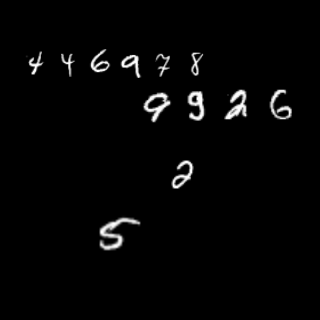 446978
9926
2
5